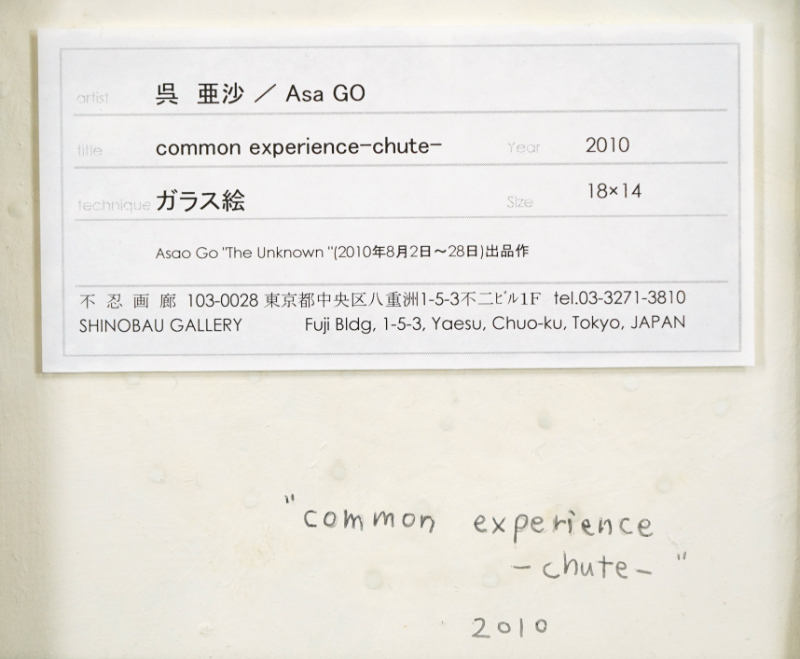 artist 呉 亜沙 ／ Asa GO
title common experience-chute- Year 2010
technique ガラス絵 Size 18×14
Asao Go "The Unknown "(2010年8月2日～28日)出品作
不 忍 画 廊 103-0028 東京都中央区八重洲1-5-3不二ビル1F tel.03-3271-3810
SHINOBAU GALLERY Fuji Bldg, 1-5-3, Yaesu, Chuo-ku, Tokyo, JAPAN
"common experience
-chute-"
2010